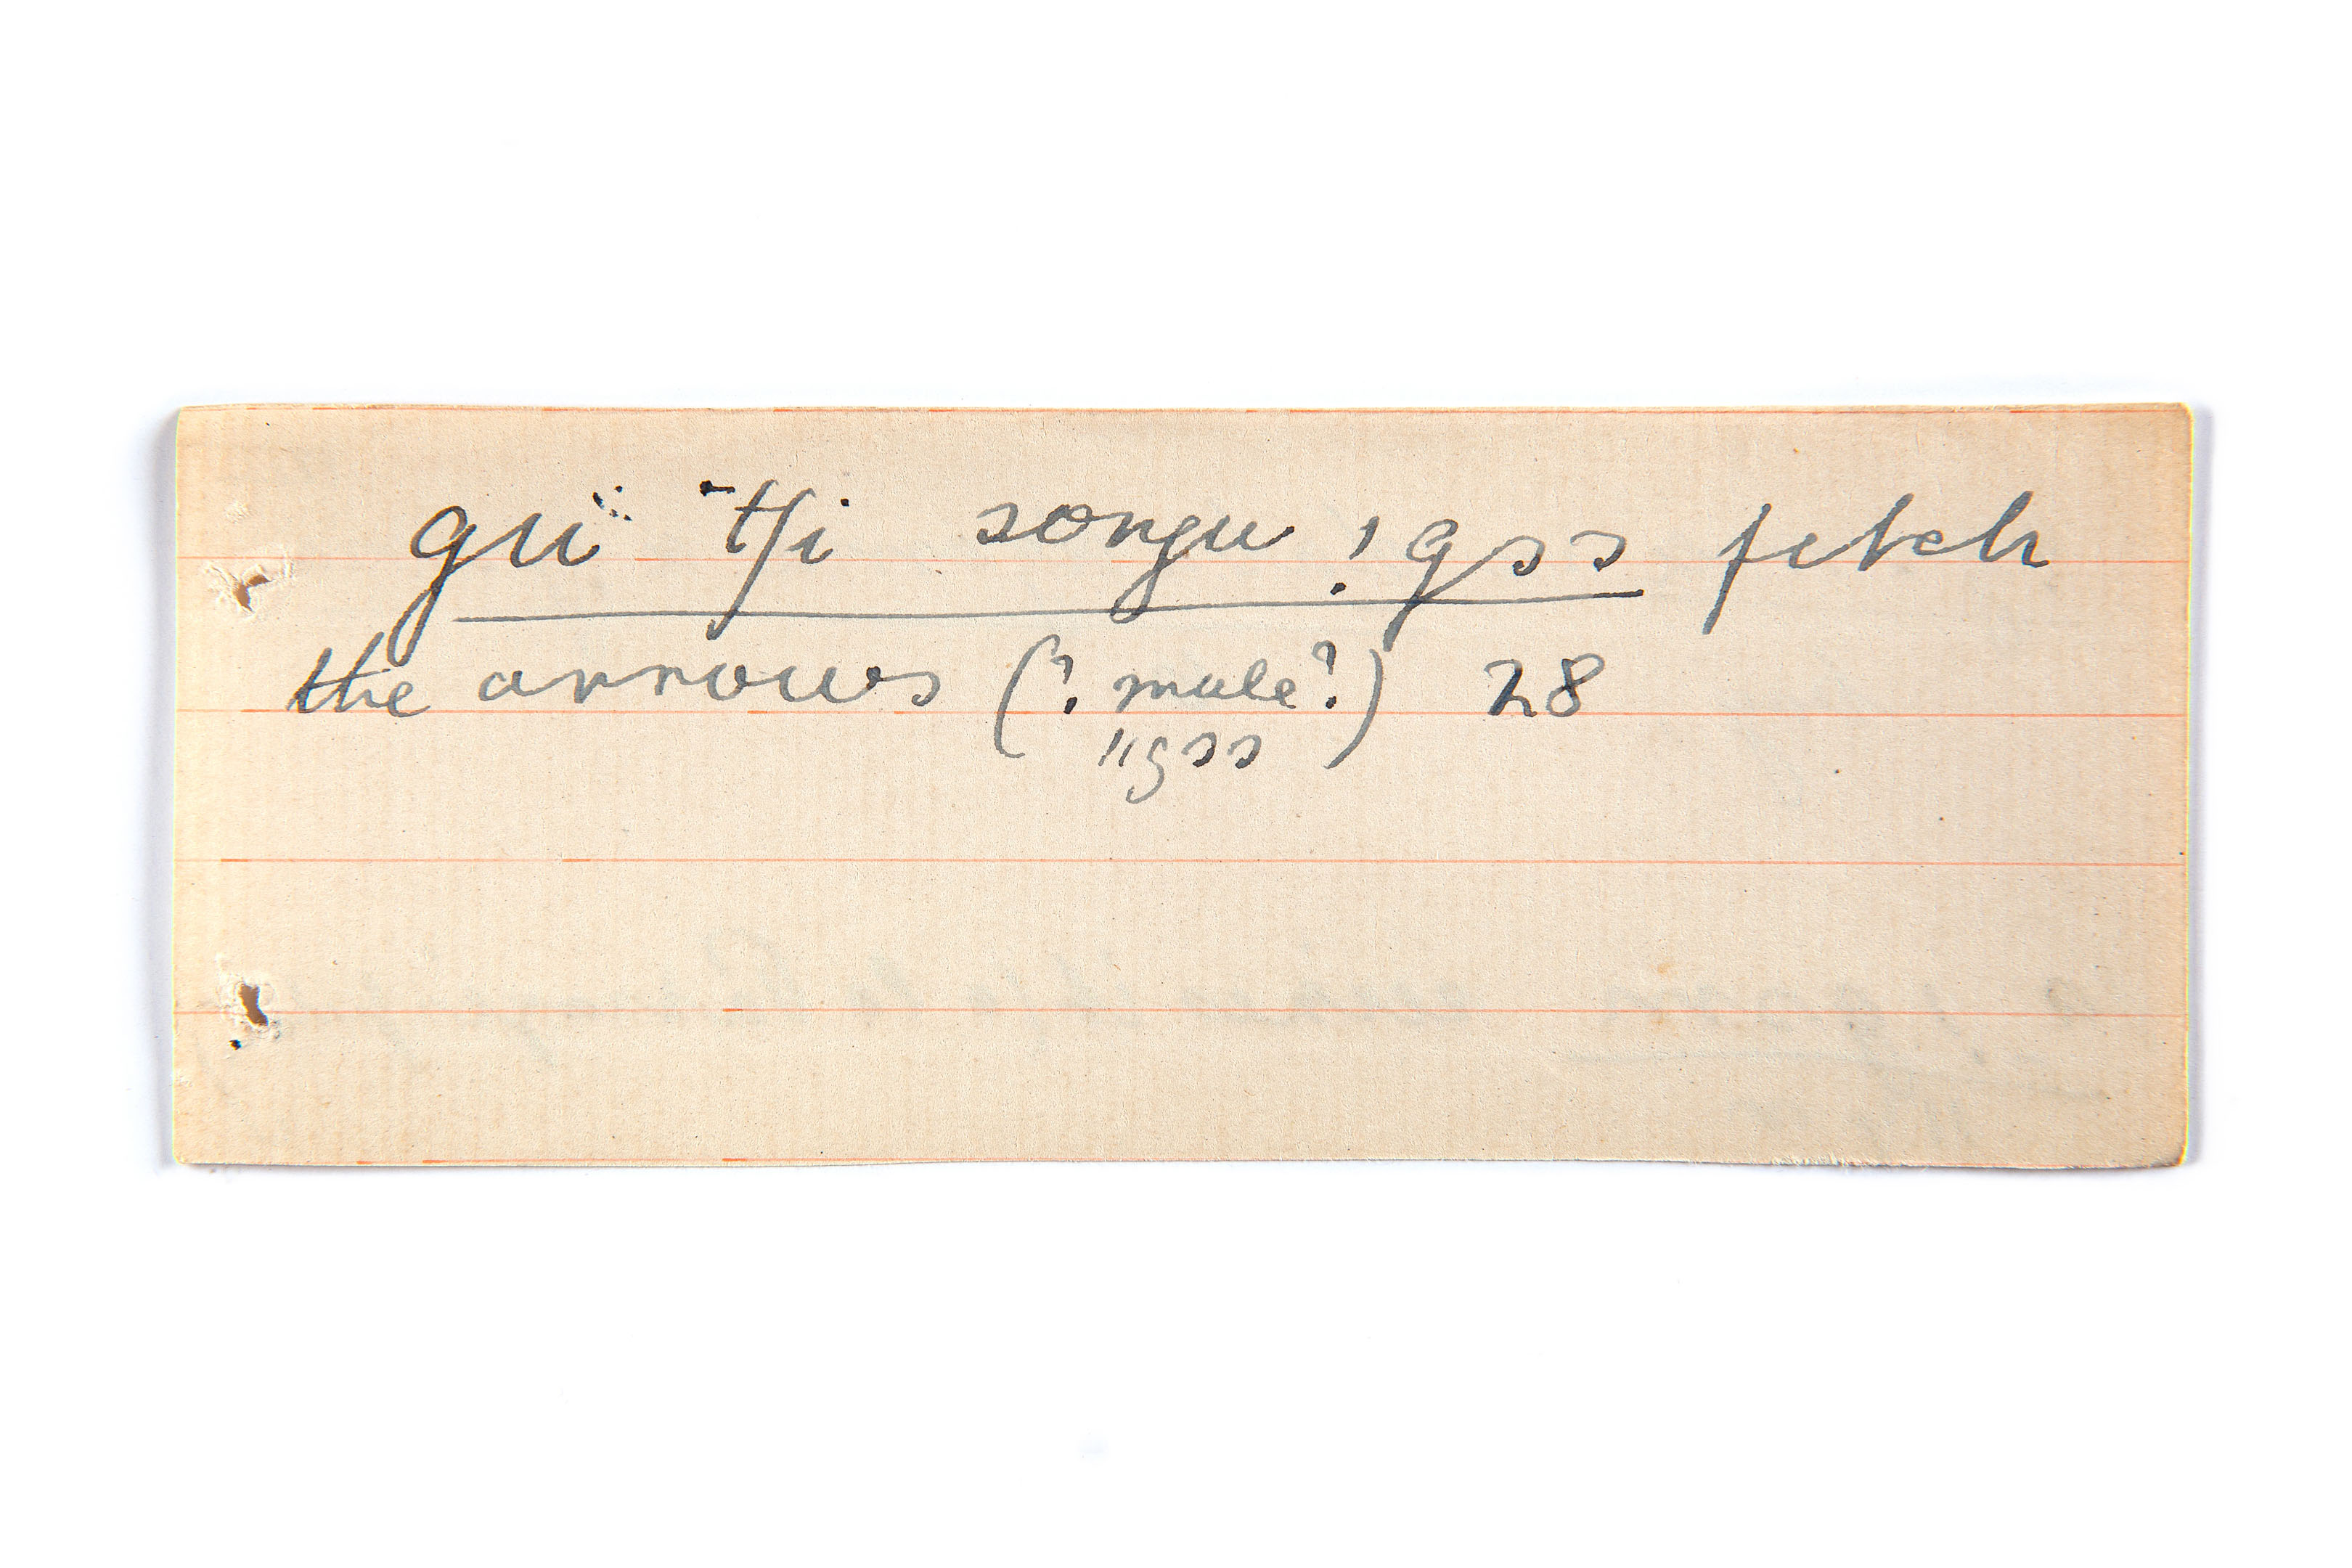 gu ̈tʃi songu !gɔɔ fetch
the arrows (? mule?) 28
ǁgɔɔ